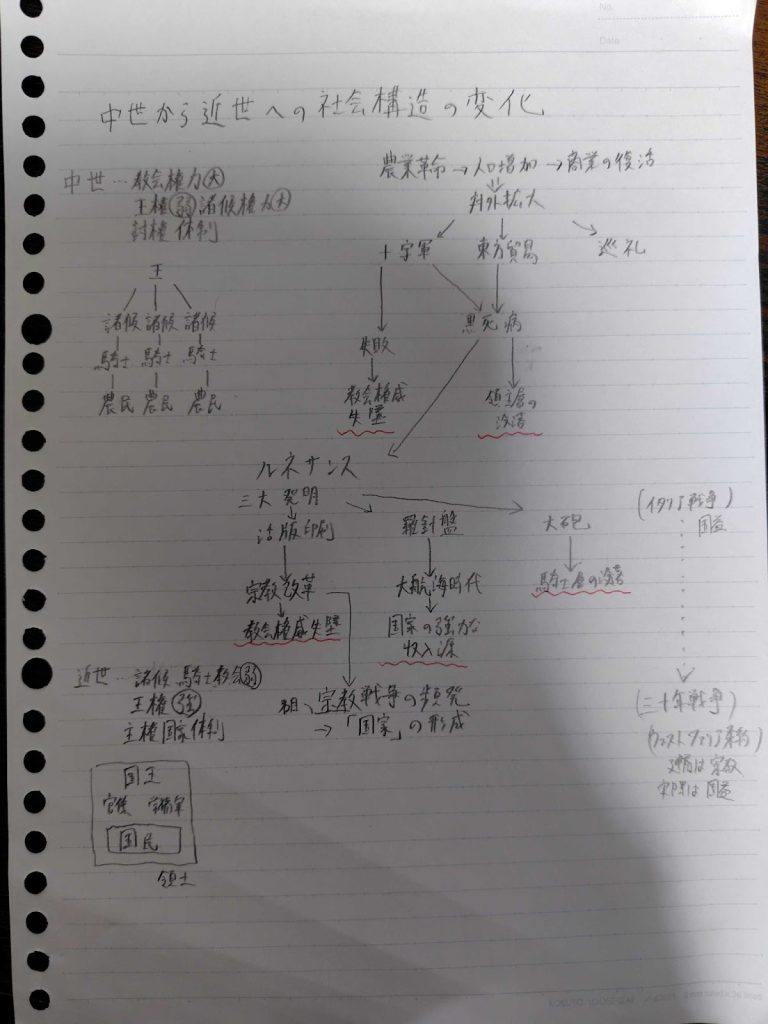 No.
Date
中世から近世への社会構造の変化
中世…教会権力大
王権弱 諸侯権力大
封権体制
王
諸侯 諸侯 諸侯
騎士 騎士 騎士
農民 農民 農民
農業革命→人口増加→商業の復活
対外拡大
十字軍 東方貿易 巡礼
黒死病
失敗
教会権威
失墜
領主層の
没落
ルネサンス
三大発明
活版印刷 羅針盤 大砲
宗教改革 大航海時代 騎士層の没落
教会権威失墜 国家の強力な
収入源
(イタリア戦争)
国益
近世…諸侯 騎士 教会弱
王権強
主権国家体制
宗教戦争の頻発
→「国家」の形成
(三十年戦争)
(ウェストファリア条約)
建前は宗教
実際は国益
国王
官僚 常備軍
国民
領土